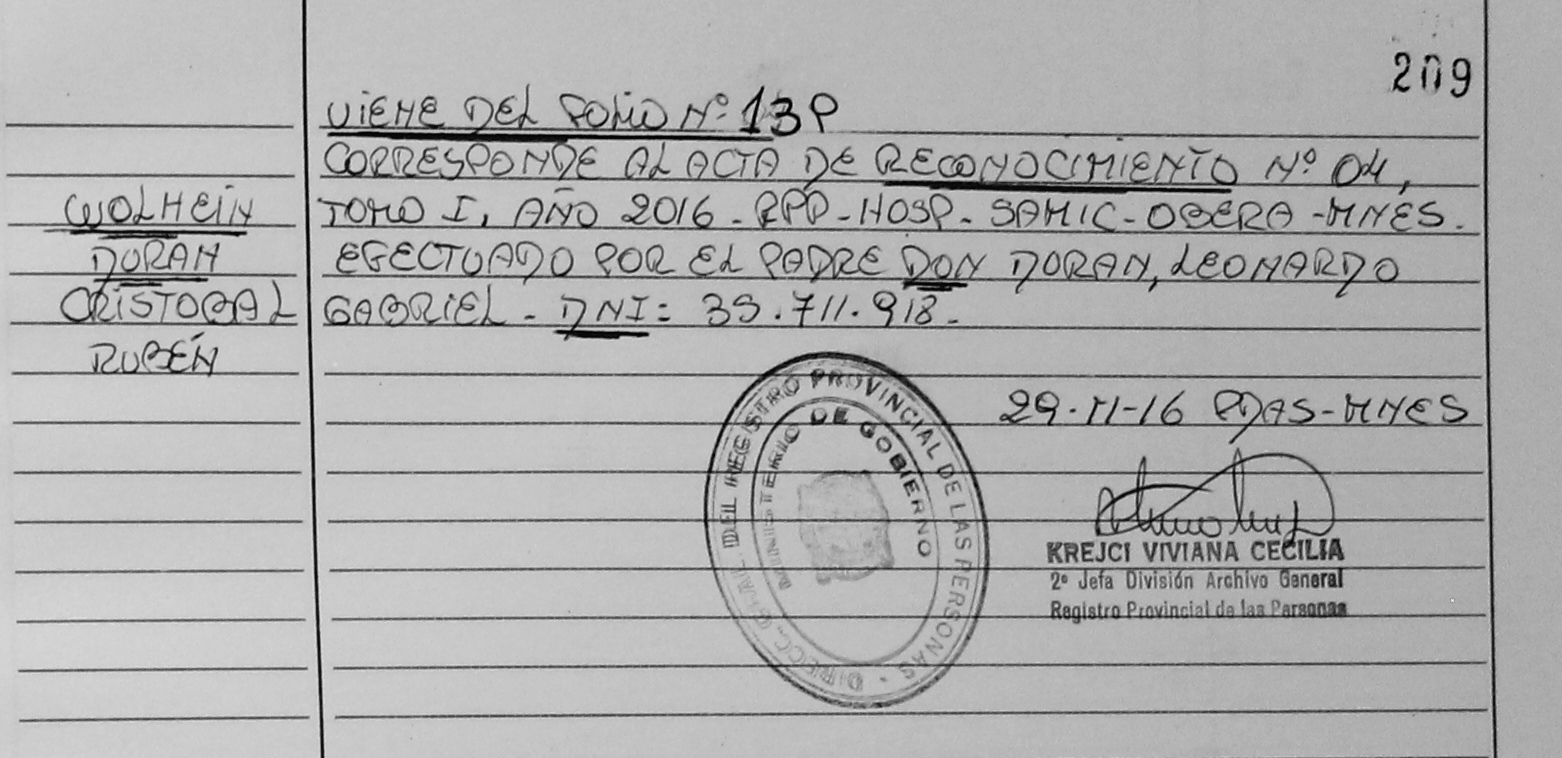 209
VIENE DEL FOLIO Nº 13P
CORRESPONDE AL ACTA DE RECONOCIMIENTO Nº 04,
TOMO I, AÑO 2016 - RPP - HOSP - SAMIC - OBERA - MNES.
EFECTUADO POR EL PADRE DON DORAN, LEONARDO
GABRIEL - DNI: 39.711.918 -
WOLHEIN
DORAN
CRISTOBAL
RUBÉN
29-11-16 PDAS-MNES
DIRECC. GRAL. DEL REGISTRO PROVINCIAL DE LAS PERSONAS
MINISTERIO DE GOBIERNO
KREJCI VIVIANA CECILIA
2º Jefa División Archivo General
Registro Provincial de las Personas